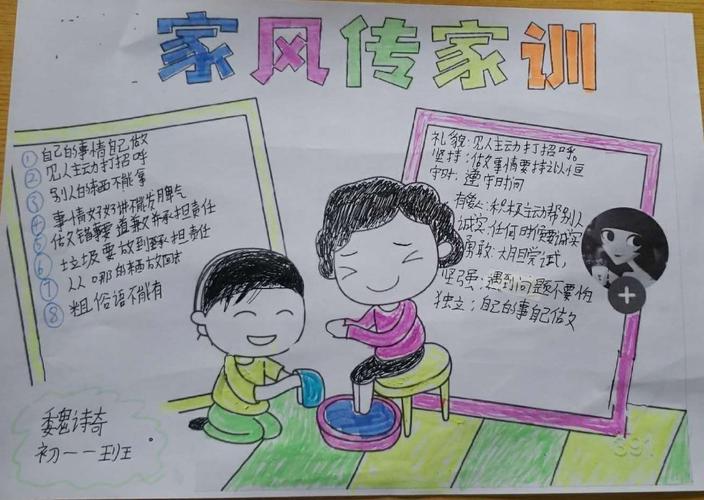 家风传家训
① 自己的事情自己做
② 见人主动打招呼
③ 别人的东西不能拿
④ 事情好好讲不能发脾气
⑤ 做错事要道歉并承担责任
⑥ 垃圾要放到
⑦ 从哪的东西放回
⑧ 粗俗语不能有
礼貌:见人主动打招呼。
坚持:做事情要持之以恒
守时:遵守时间
有爱心:积极主动帮别人
诚实:任何时候要诚实
勇敢:大胆尝试,
坚强:遇到问题不要怕
独立:自己的事自己做
魏诗奇
初一一班